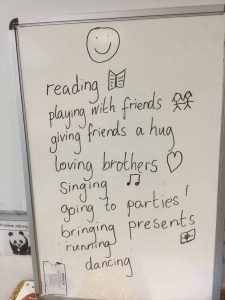 reading
playing with friends
giving friends a hug
loving brothers
singing
going to parties!
bringing presents
running
dancing